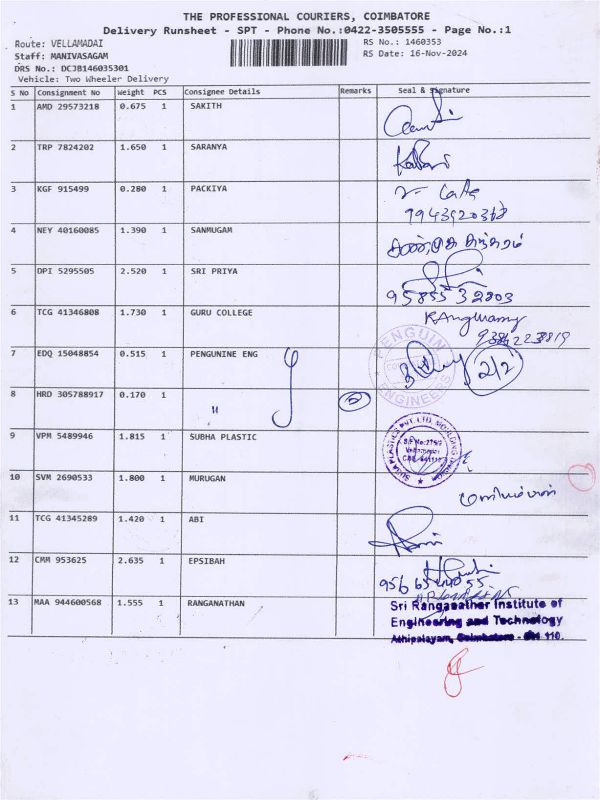 THE PROFESSIONAL COURIERS, COIMBATORE
Delivery Runsheet - SPT - Phone No.:0422-3505555 - Page No.:1
Route: VELLAMADAI RS No.: 1460353
Staff: MANIVASAGAM RS Date: 16-Nov-2024
DRS No.: DCJB146035301
Vehicle: Two Wheeler Delivery
S No Consignment No Weight PCS Consignee Details Remarks Seal & Signature
1 AMD 29573218 0.675 1 SAKITH
2 TRP 7824202 1.650 1 SARANYA
3 KGF 915499 0.280 1 PACKIYA
4 NEY 40160085 1.390 1 SANMUGAM
5 DPI 5295505 2.520 1 SRI PRIYA
6 TCG 41346808 1.730 1 GURU COLLEGE
7 EDQ 15048854 0.515 1 PENGUNINE ENG
PENGUIN ENGINEERS
2/2
8 HRD 305788917 0.170 1 "
9 VPM 5489946 1.815 1 SUBHA PLASTIC
10 SVM 2690533 1.800 1 MURUGAN
11 TCG 41345289 1.420 1 ABI
12 CMM 953625 2.635 1 EPSIBAH
13 MAA 944600568 1.555 1 RANGANATHAN
Sri Ranganather Institute of
Engineering and Technology
Athipalayam, Coimbatore - 641 110.